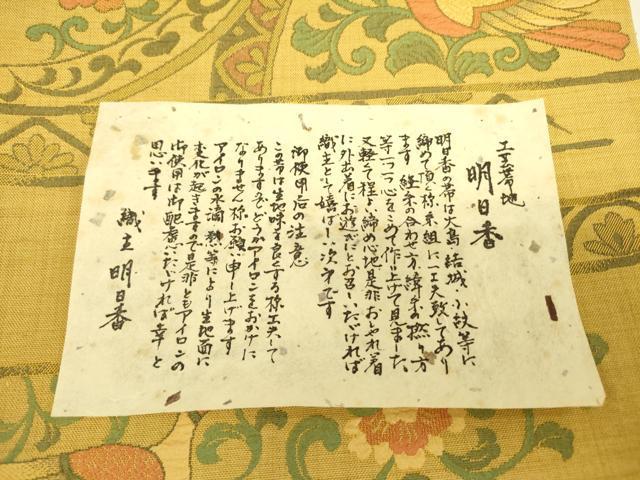 工芸帯地
明日香
明日香の帯は大島 結城 小紋等に
締めて頂く様糸組に一工夫致してあり
ます 経糸の合わせ方 緯糸の撚り方
等一つ一つ心をこめて作り上げて見ました
又軽くて程よい締め心地是非おしゃれ着
に外出着にお遊びにとお召しいただければ
織主として嬉ばしい次第です
御使用后の注意
この帯は生地味を良くする様工夫して
ありますのでどうかアイロンをおかけに
なりません様お願い申し上げます
アイロンの水滴 熱等により生地面に
変化が起きますので是非ともアイロンの
御使用は御配慮いただければ幸と
思います
織主 明日香